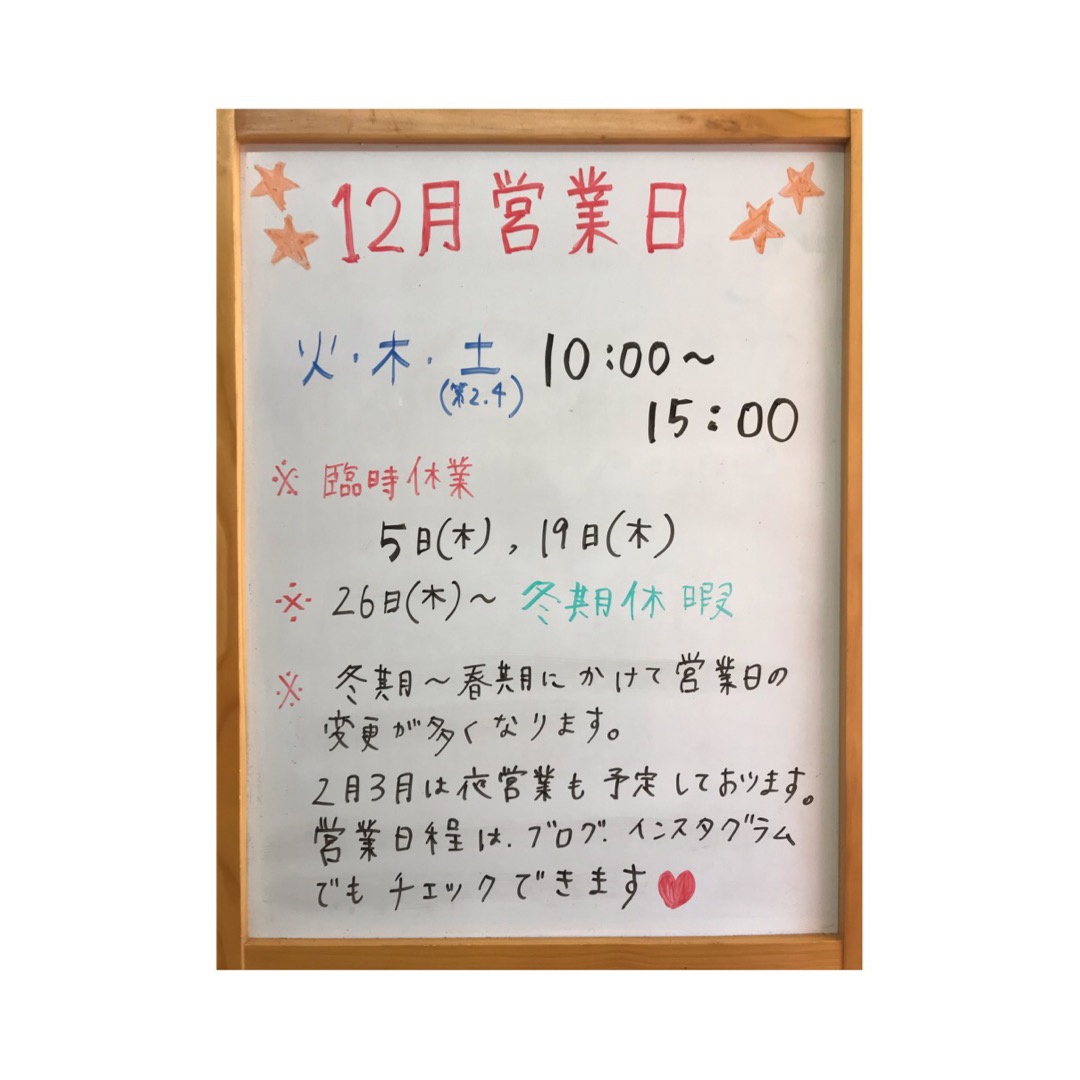 12月営業日
火・木・土 10:00～
(第2.4)
15:00
※ 臨時休業
5日(木), 19日(木)
※ 26日(木)～ 冬期休暇
※ 冬期～春期にかけて営業日の
変更が多くなります。
2月3月は夜営業も予定しております。
営業日程は.ブログ.インスタグラム
でもチェックできます